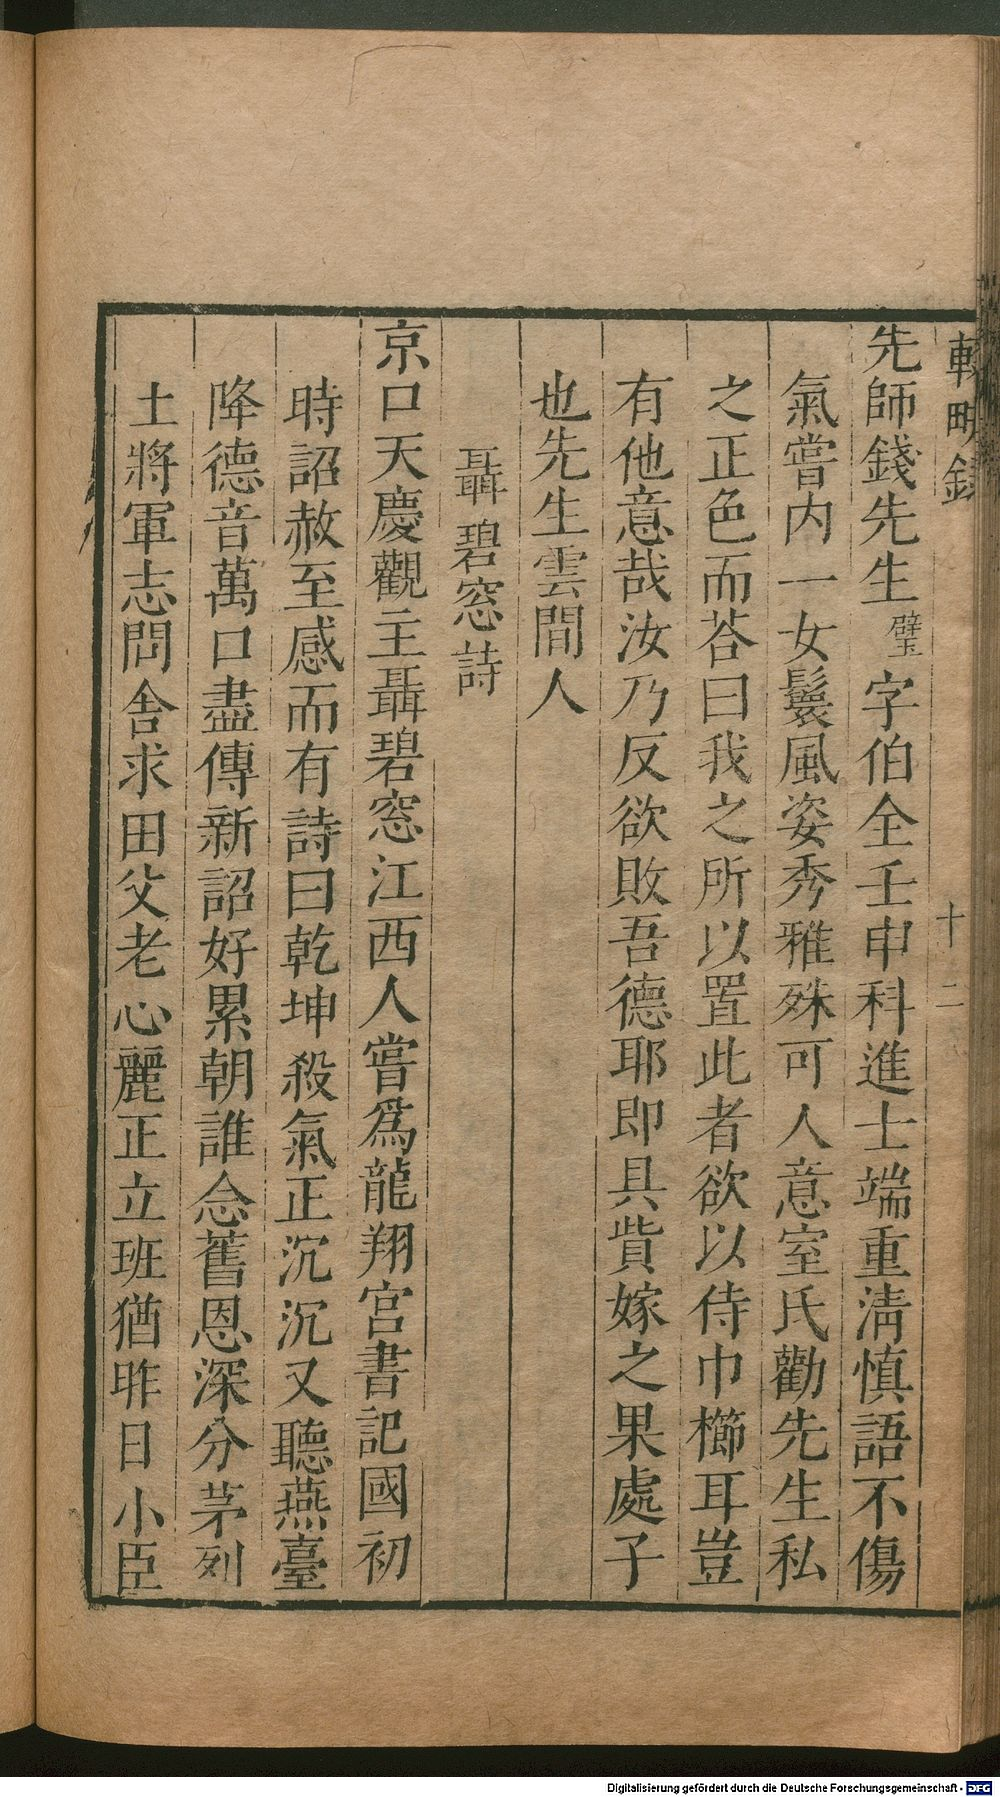 輟畊錄
十二
先師錢先生璧字伯全壬申科進士端重淸慎語不傷
氣嘗内一女鬟風姿秀雅殊可人意室氏勸先生私
之正色而荅曰我之所以置此者欲以侍巾櫛耳豈
有他意哉汝乃反欲敗吾德耶即具貲嫁之果處子
也先生雲間人
聶碧窓詩
京口天慶觀主聶碧窓江西人嘗爲龍翔宮書記國初
時詔赦至感而有詩曰乾坤殺氣正沉沉又聽燕臺
降德音萬口盡傳新詔好累朝誰念舊恩深分茅列
土將軍志問舍求田父老心麗正立班猶昨日小臣
Digitalisierung gefördert durch die Deutsche Forschungsgemeinschaft - DFG